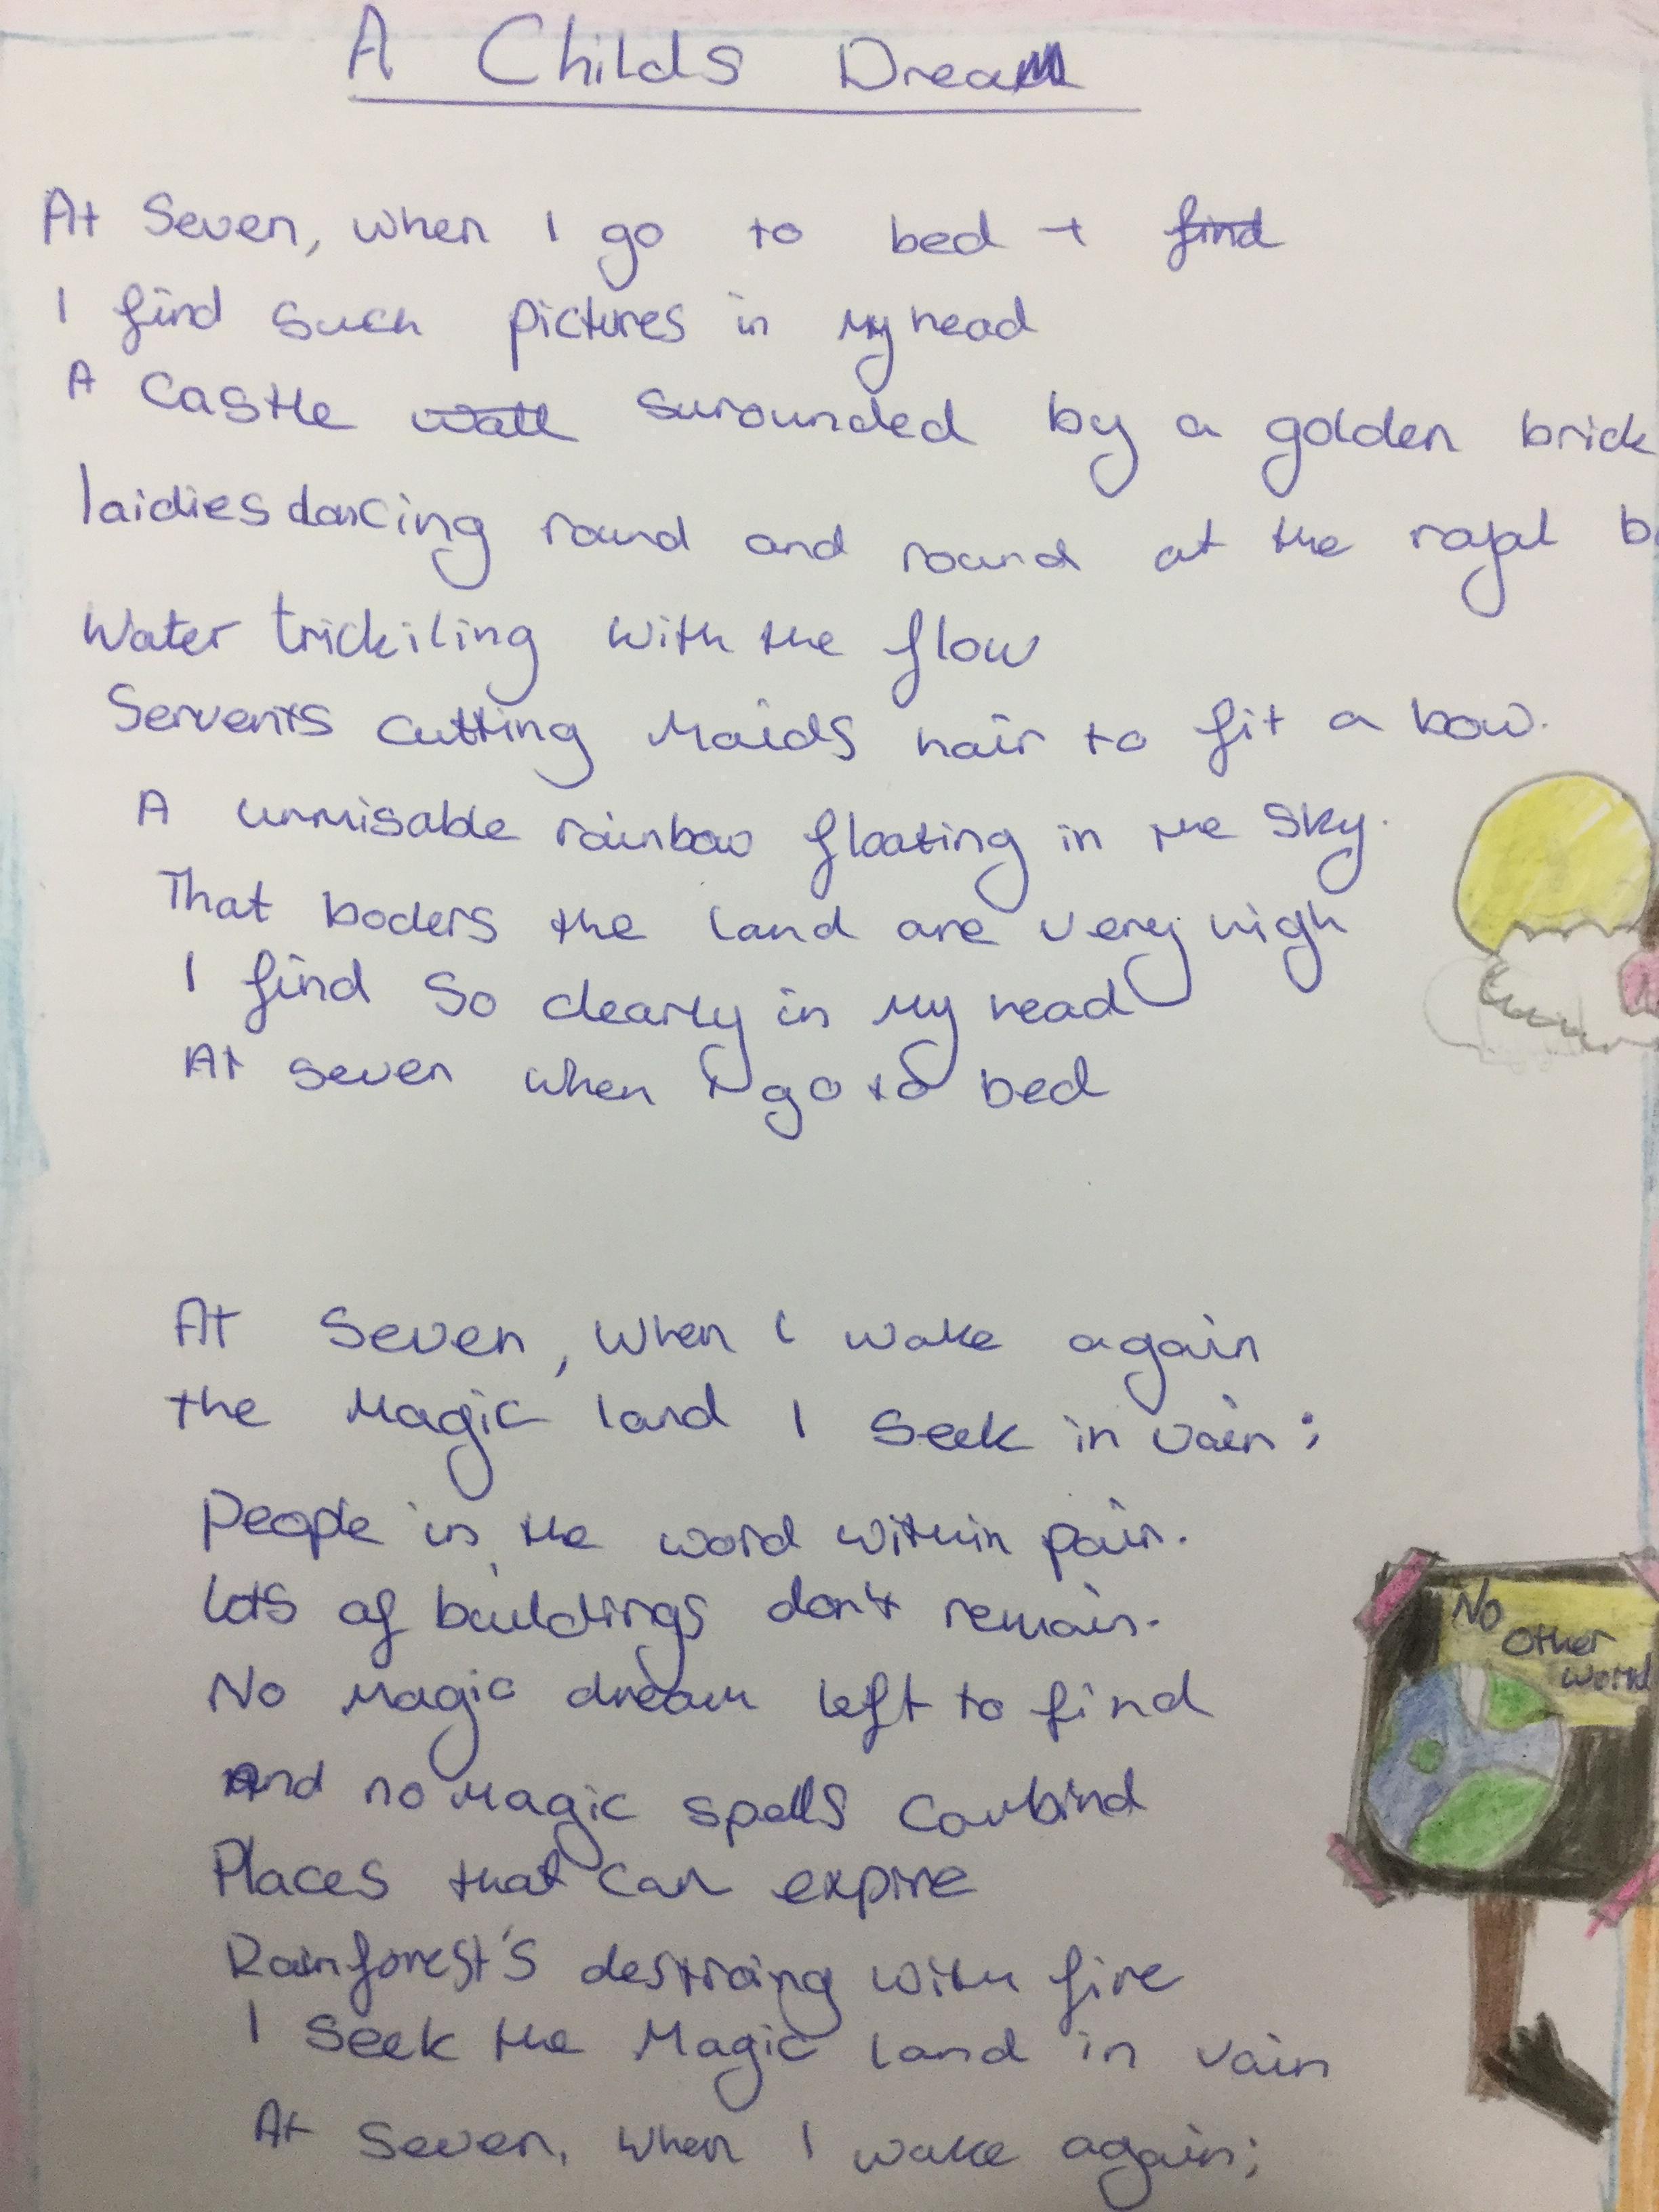 A Childs Dream
At Seven, when I go to bed + find
I find such pictures in my head
A Castle wall surounded by a golden brick
laidies dancing round and round at the royal
Water trickiling with the flow
Servents cutting Maids hair to fit a bow.
A unmisable rainbow floating in the sky.
That boders the land are very high
I find so clearly in my head
At seven when I go to bed
At Seven, when I wake again
the Magic land I seek in vain;
People in the word within pain.
Lots of buildings don't remain.
No magic dream left to find
And no magic spells combind
Places that can expire
Rainforest's destroing with fire
I seek the Magic land in vain
At Seven, when I wake again;
No
other
world